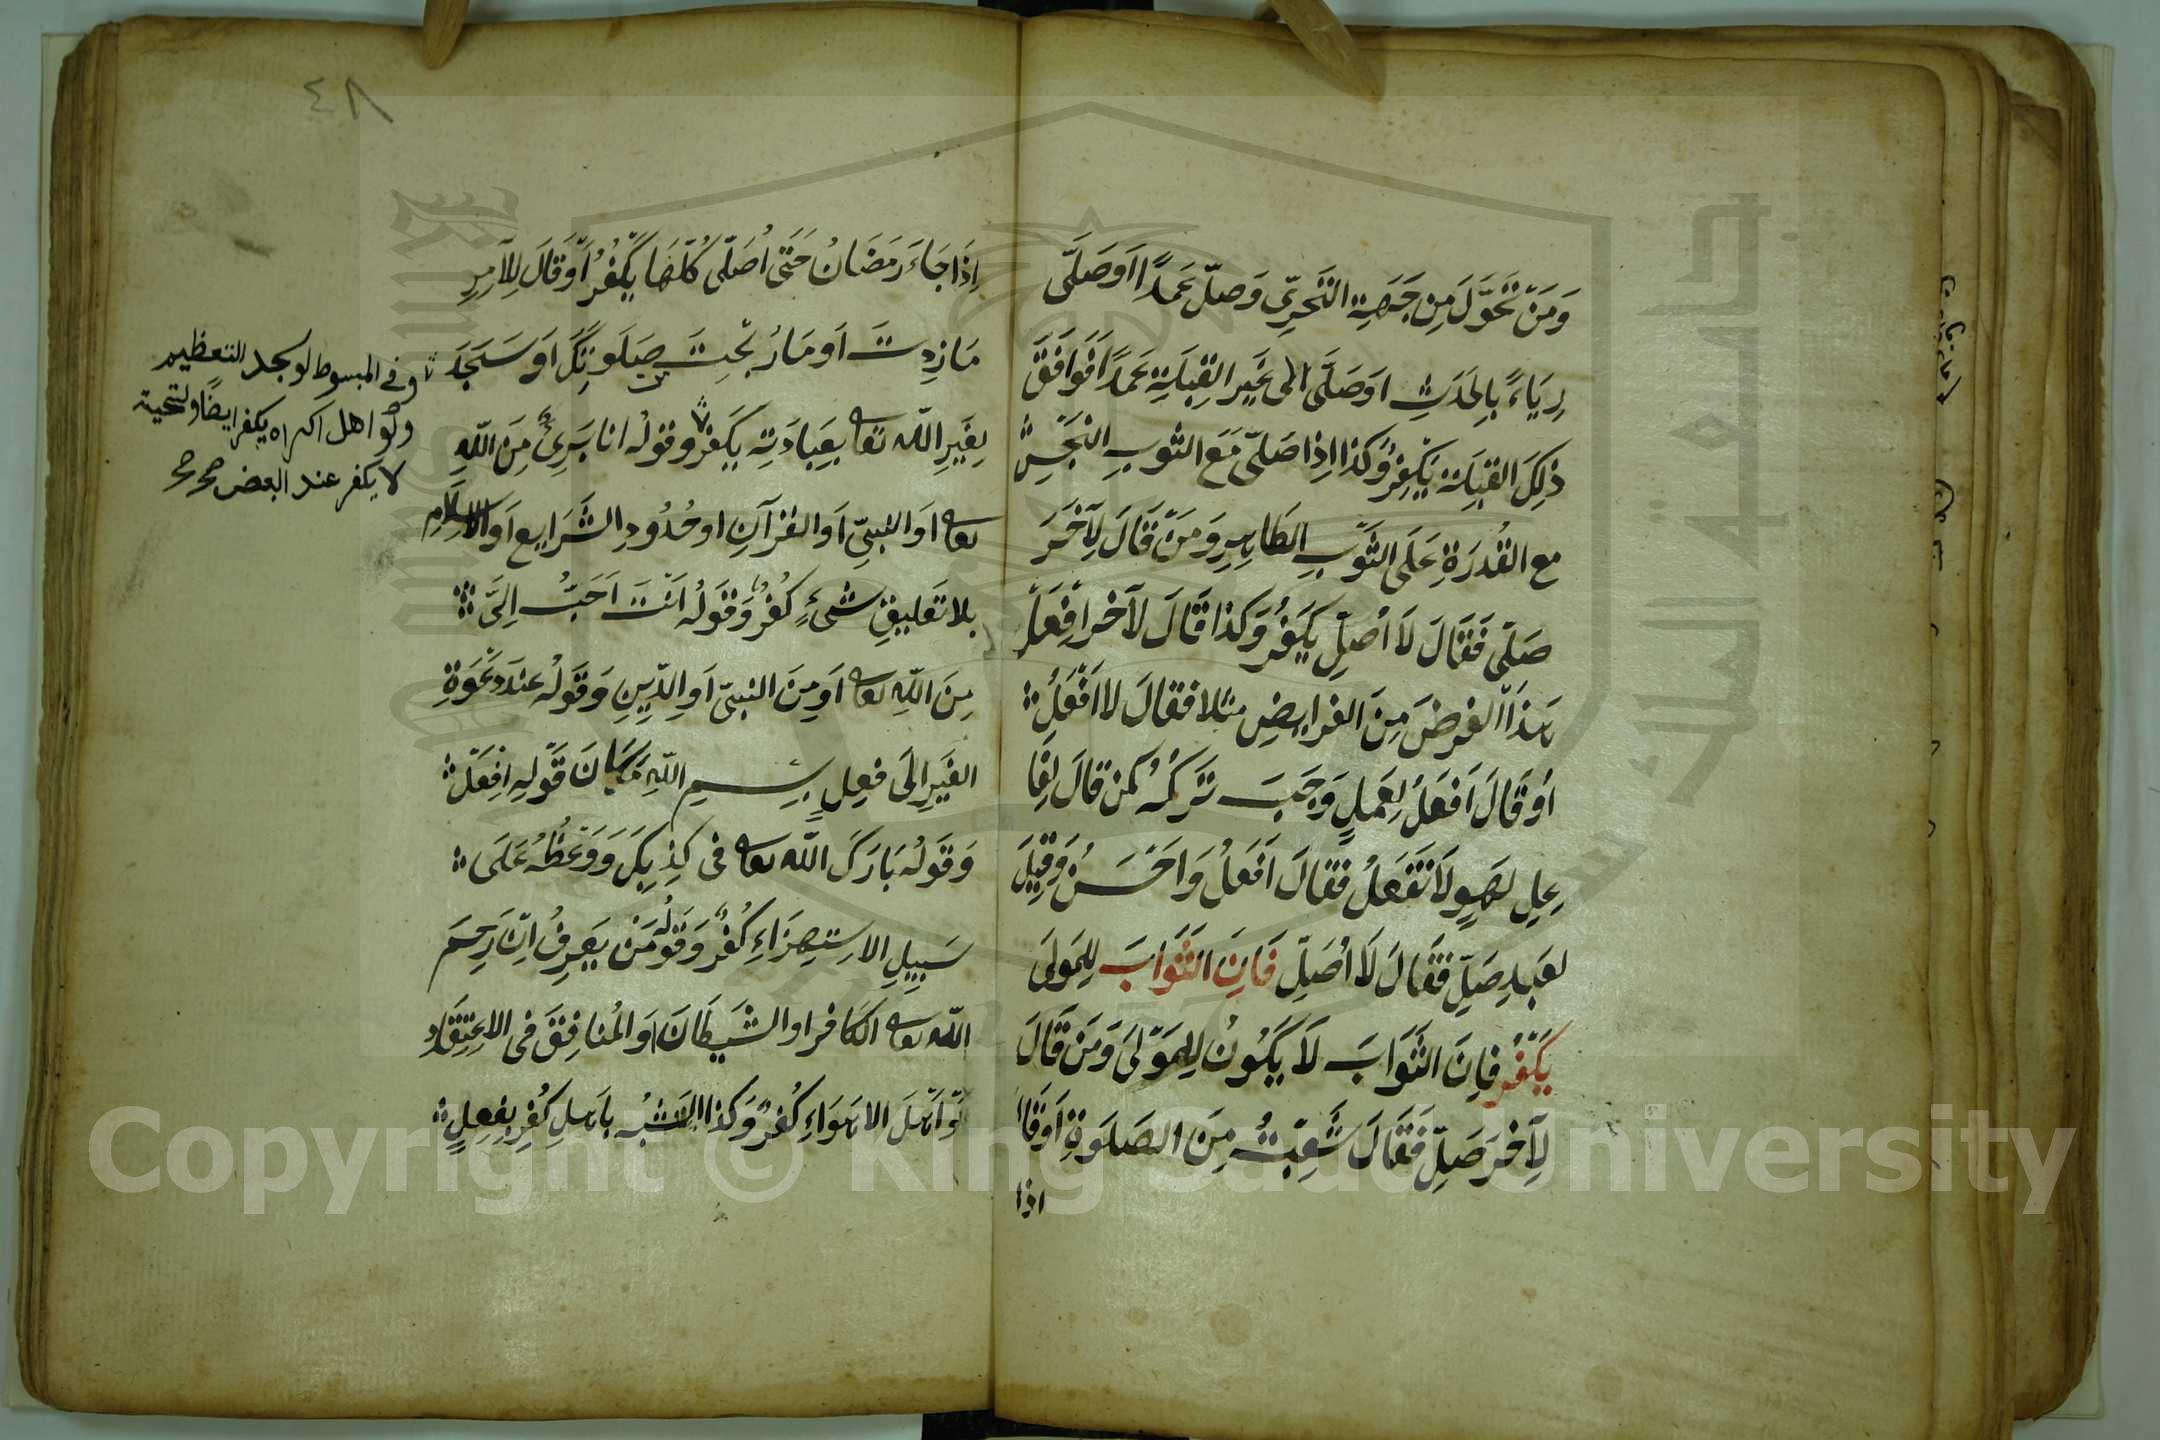 وَمَنْ تَحَوَّلَ مِن جَهَةِ التَحرِّي وَصلّى عَمداً اَوصَلَّى
رِيَاءً بِالحَدَثِ اوَصَلَّى الى غَيرِ القِبلَةِ عَمداً فَوافَقَ
ذلِكَ القبلَة يَكْفِرُ وكَذا اِذا صَلّى مَعَ الثوبِ النَجَسِ
مع القُدرَةِ عَلَى الثَوبِ الطَاهِرِ وَمَنْ قَالَ لِآخَرَ
صَلّى فَقالَ لَا اُصلّي يَكفُر وكذا قَالَ لآخر اِفعَلْ
هٰذَا الفرضَ مِنَ الفرايضِ مثلا فقالَ لا اَفْعَلُ
اَو قَالَ اَفعَلُ لِعَملٍ وَجَبَ تَركُهُ كمن قالَ لِفَا
عِلِ لهوٍ لَا تَفعَلُ فقالَ اَفْعَلُ وَاَحسَنُ وَقيلَ
لعَبدِ صَلِّ فقَالَ لَا اُصلِّي فَاِنَ الثَوابَ لِلمَولَى
يَكفُر فاِنَ الثَوابَ لَا يَكُونُ لِلمَوْلَى وَمَن قَالَ
لِآخرَ صَلِّ فَقَالَ شَبِعْتُ مِنَ الصَلوَةِ اَوقَالَ
اذا
٤٨
اِذَا جَاءَ رَمَضَانُ حَتّى اُصَلّى كُلّهَا يَكْفُرُ اَوقَالَ لِلآمِرِ
مَا زِدتَ اَومَا رَبحتَ صَلوتكَ اَو سَجَدَ
لِغَيرِ اللّه تعالى بعِبادَتِه يَكفر وقولُه انا بَرِئٌ مِنَ اللّهِ
تعالى اَو النبيّ اَو القرآنِ او حُدُودِ الشَرَايع اَو الاسلام
بلا تَعليقِ شئٍ كُفرٌ وَقَولُه اَنتَ اَحَبُّ اِلَىَّ
مِنَ اللّهِ تعالى اَو مِنَ النبيّ اَو الدِّينِ وَقَولُه عندَ دَعْوَةِ
الغَيرِ اِلَى فعلٍ بِسمِ اللّهِ مَكانَ قَولِهِ اِفعَلْ
وَقَولُه بَارَكَ اللّه تعالى فى كِذبِكَ وَوَعْظُهُ عَلَى
سَبِيلِ الاستِهزاءِ كُفرٌ وَقَولُه مَن يَعرِفُ اِنْ رَحِمَ
اللّه تعالى الكَافر او الشَيطَانَ اَو المُنافِقَ فى الاعتِقَادِ
اَو اَهلَ الاهوَاءِ كُفرٌ وَكذا التشبُه باهلِ كُفرٍ بفعلٍ
وفى المبسوط لو سجد للتعظيم
ولو اهل اكراه يكفر ايضا ولتحية
لا يكفر عند البعض صح صح
Copyright © King Saud University